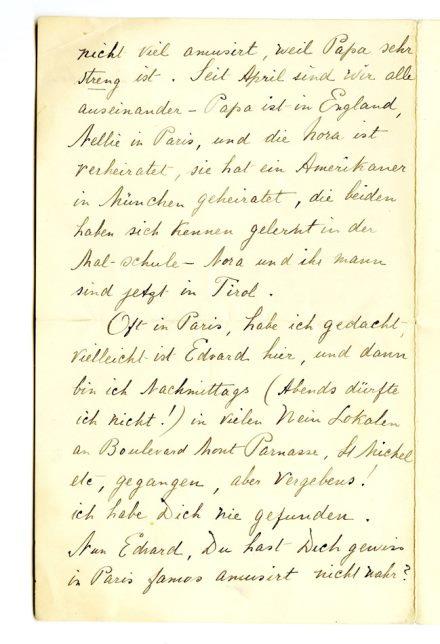 nicht viel amusirt, weil Papa sehr
streng ist. Seit April sind wir alle
auseinander – Papa ist in England,
Nellie in Paris, und die Nora ist
verheiratet, sie hat ein Amerikaner
in München geheiratet, die beiden
haben sich kennen gelernt in der
Mal-schule – Nora und ihr mann
sind jetzt in Tirol.
Oft in Paris, habe ich gedacht,
vielleicht ist Edvard hier, und dann
bin ich Nachmittags (Abends dürfte
ich nicht!) in vielen Wein Lokalen
an Boulevard Mont Parnasse, St Michel
etc, gegangen, aber vergebens!
ich habe Dich nie gefunden.
Nun Edvard, Du hast Dich gewiss
in Paris famos amusirt nicht wahr?